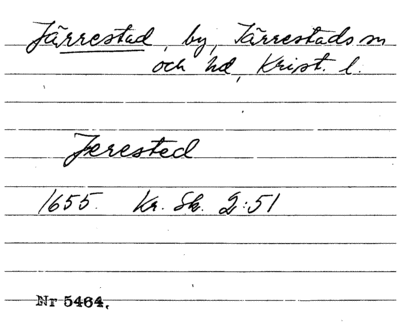 Järrestad, by, Järrestads sn
och hd, Krist. l.
Jerested
1655. Kr. Sk. 2:51
Nr 5464.